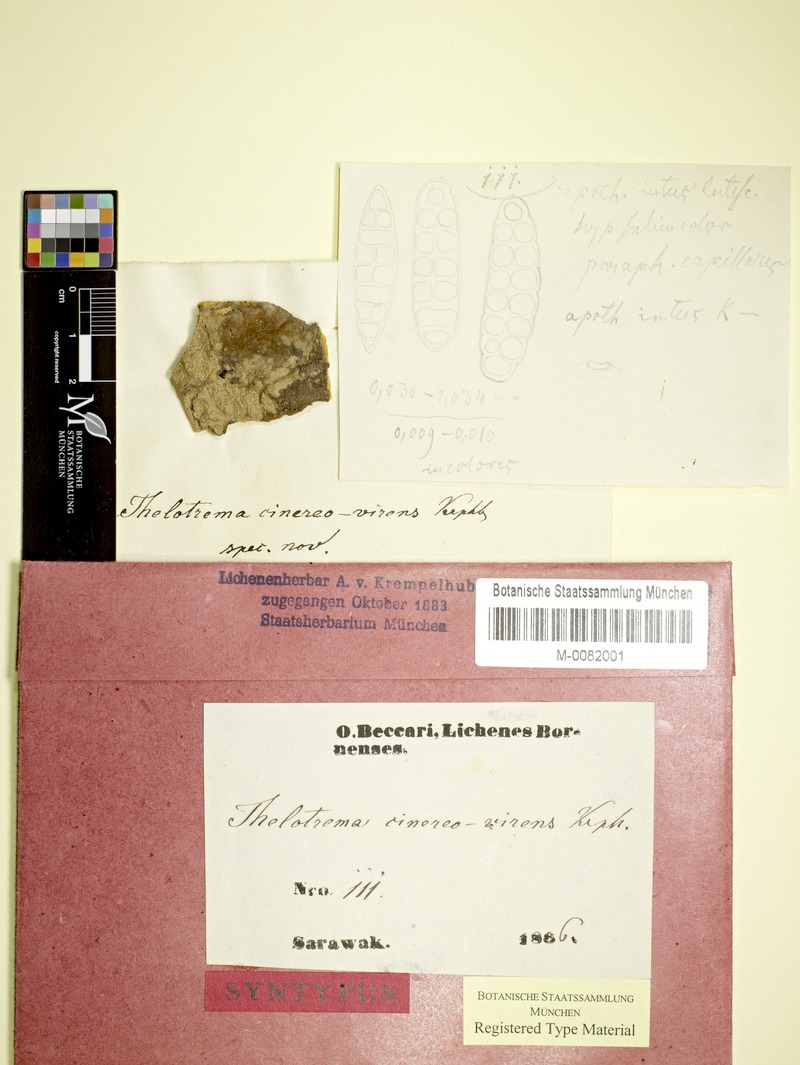 111.
apoth. intus lutesc.
hyp. subincolor
paraph. capillaris
apoth. intus K –
0,030 – 0,034 mm
0,009 – 0,010
incolores
0
cm
1
2
copyright reserved
M
BOTANISCHE
STAATSSAMMLUNG
MÜNCHEN
Thelotrema cinereo-virens Krphb
spec. nov.
Lichenenherbar A. v. Krempelhub
zugegangen Oktober 1883
Staatsherbarium München
Botanische Staatssammlung München
M-0082001
O. Beccari, Lichenes Bor-
nenses.
Thelotrema cinereo-virens Krph.
Nro. 111.
Sarawak. 1866.
SYNTYPUS
BOTANISCHE STAATSSAMMLUNG
MÜNCHEN
Registered Type Material